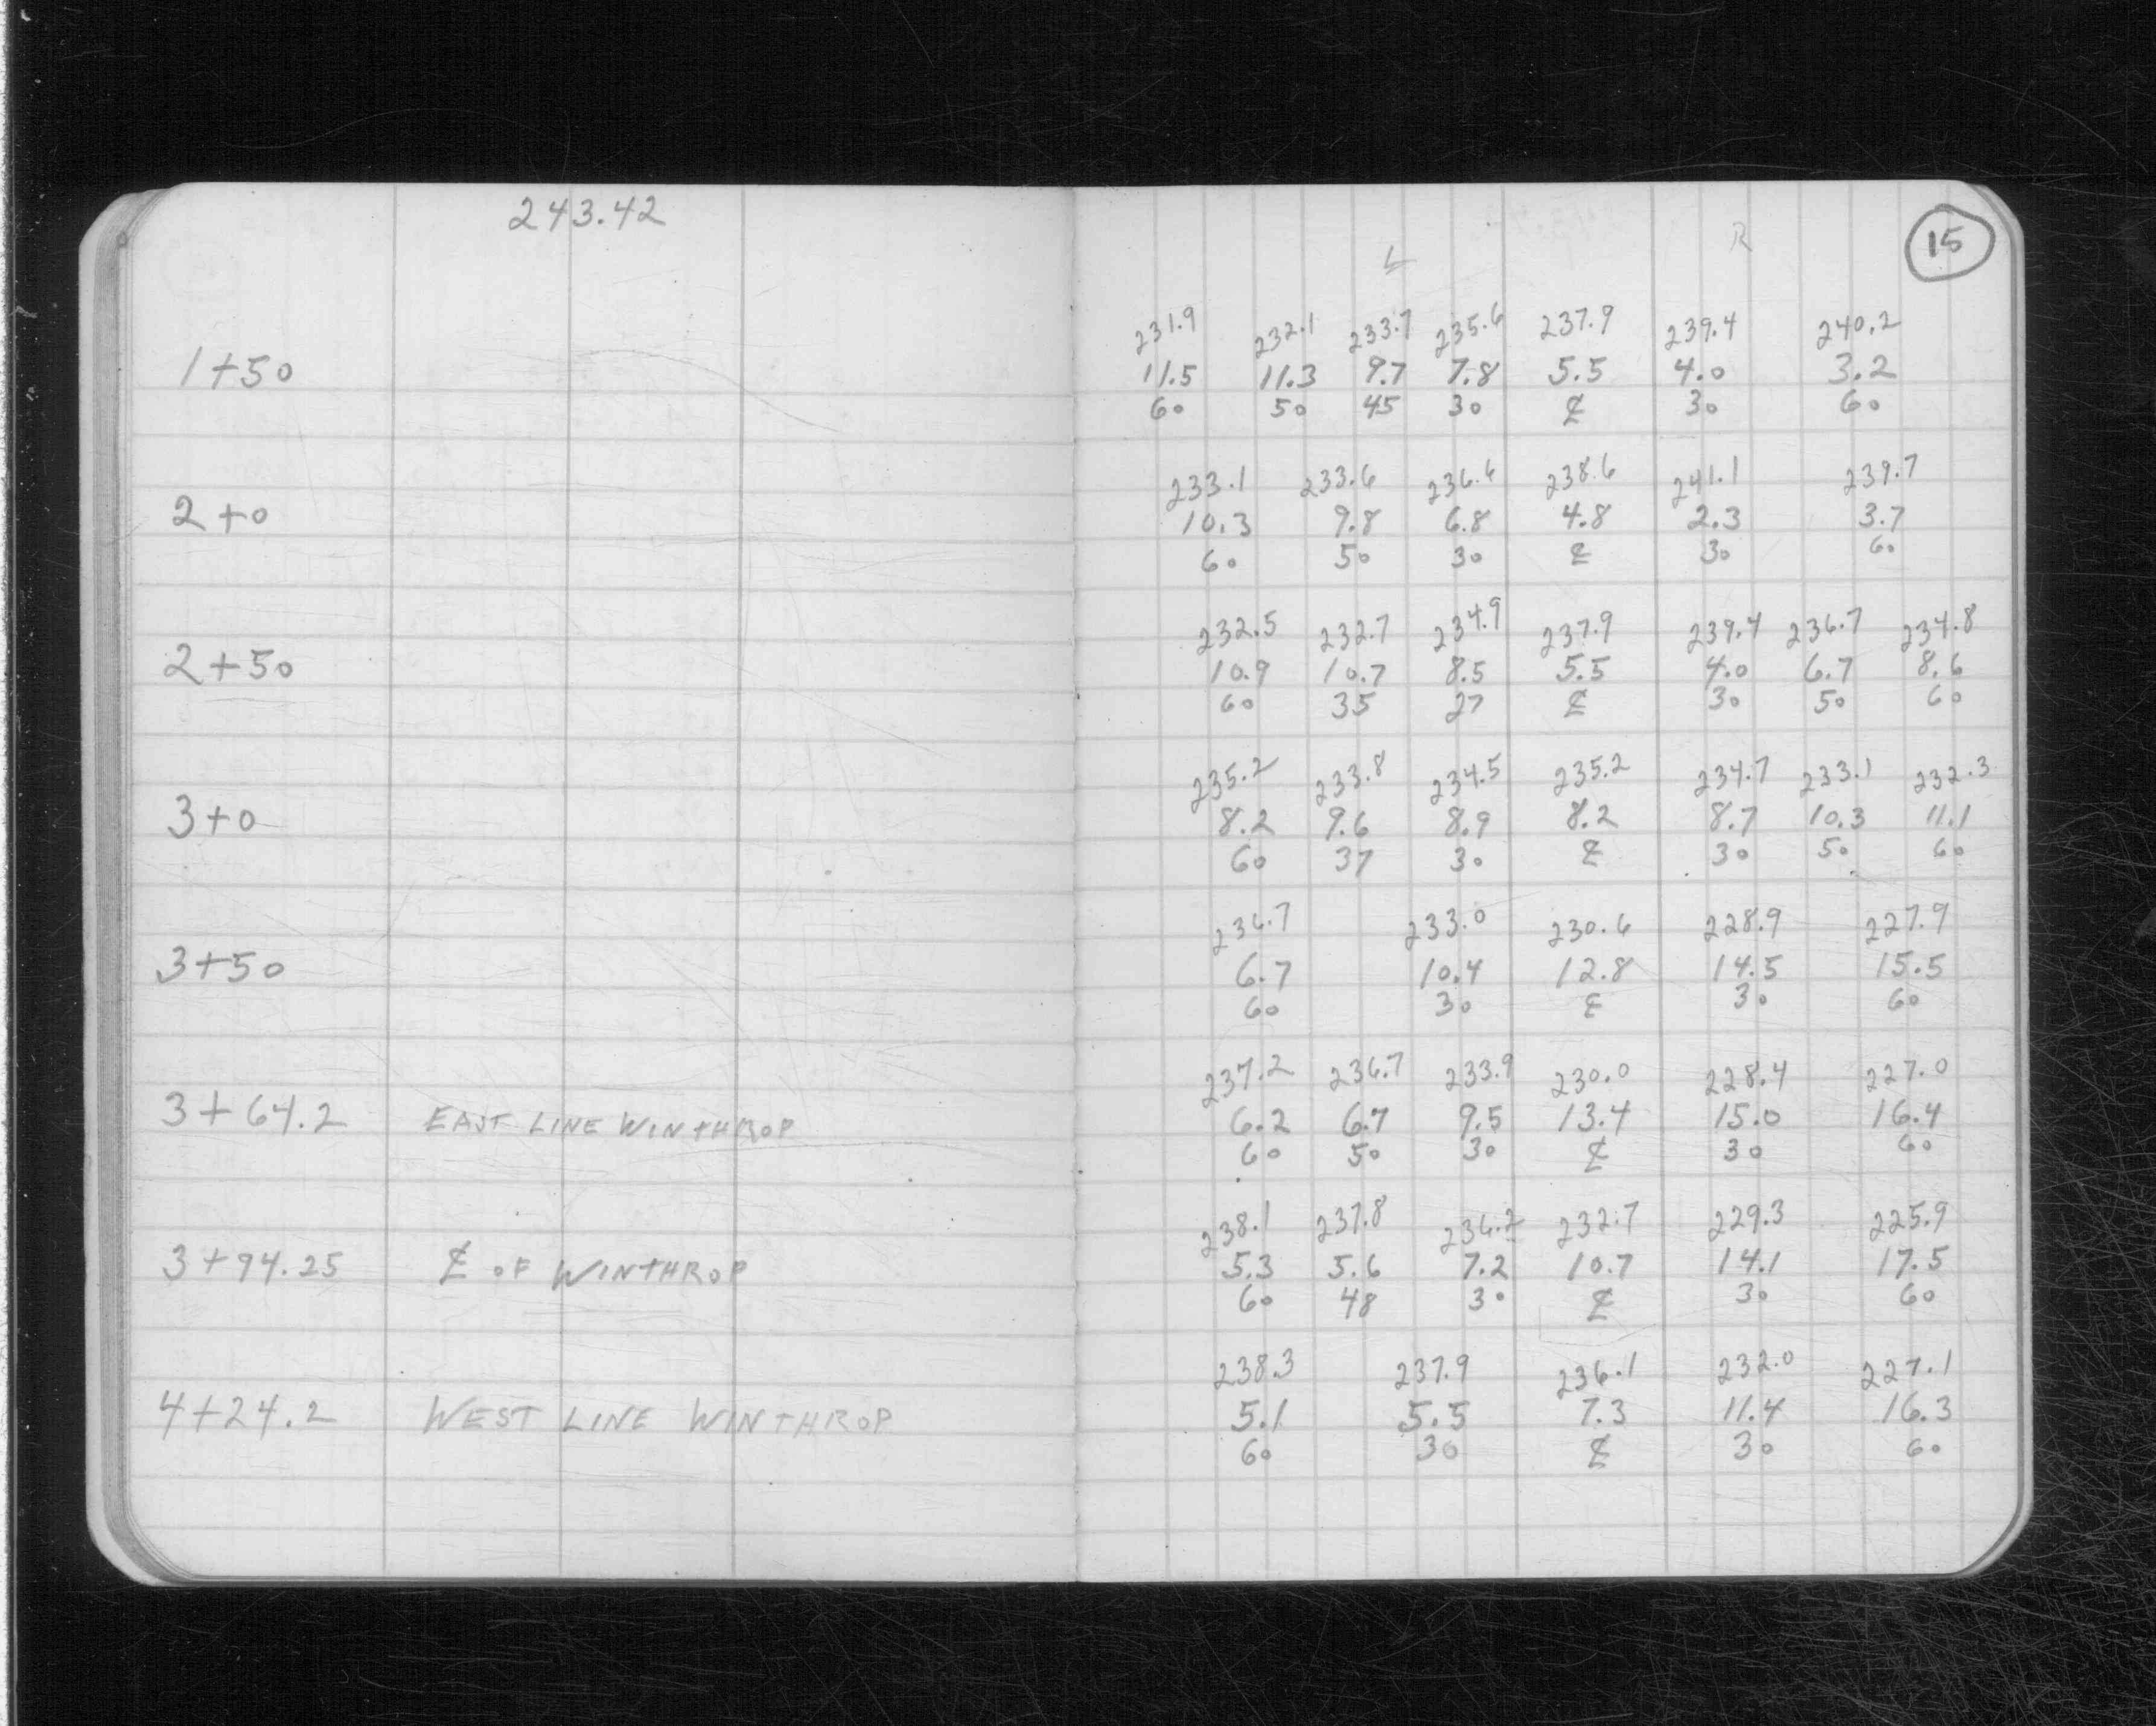 243.42
15
L R
231.9 232.1 233.7 235.6 237.9 239.4 240.2
1+50 11.5 11.3 9.7 7.8 5.5 4.0 3.2
60 50 45 30 ℄ 30 60
233.1 233.6 236.6 238.6 241.1 239.7
2+0 10.3 9.8 6.8 4.8 2.3 3.7
60 50 30 ℄ 30 60
232.5 232.7 234.9 237.9 239.4 236.7 234.8
2+50 10.9 10.7 8.5 5.5 4.0 6.7 8.6
60 35 27 ℄ 30 50 60
235.2 233.8 234.5 235.2 234.7 233.1 232.3
3+0 8.2 9.6 8.9 8.2 8.7 10.3 11.1
60 37 30 ℄ 30 50 60
236.7 233.0 230.6 228.9 227.9
3+50 6.7 10.4 12.8 14.5 15.5
60 30 ℄ 30 60
237.2 236.7 233.9 230.0 228.4 227.0
3+64.2 EAST LINE WINTHROP 6.2 6.7 9.5 13.4 15.0 16.4
60 50 30 ℄ 30 60
238.1 237.8 236.2 232.7 229.3 225.9
3+94.25 ℄ OF WINTHROP 5.3 5.6 7.2 10.7 14.1 17.5
60 48 30 ℄ 30 60
238.3 237.9 236.1 232.0 227.1
4+24.2 WEST LINE WINTHROP 5.1 5.5 7.3 11.4 16.3
60 30 ℄ 30 60